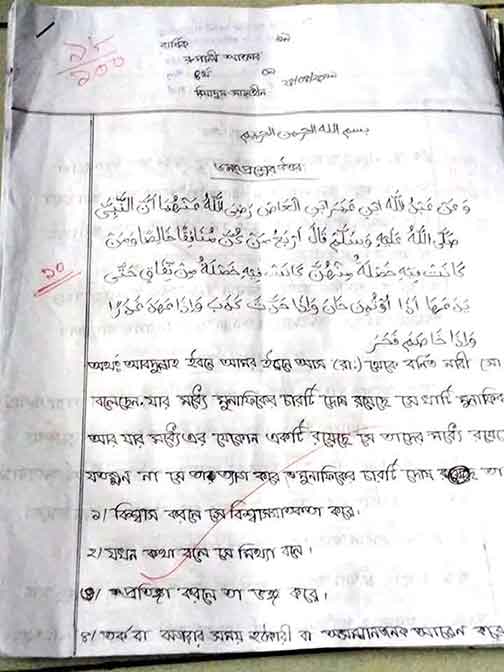 ৯৮
১০০
বার্ষিক
রূপালী আক্তার
৪র্থ
রিয়াদুস সালেহীন
بسم الله الرحمن الرحيم
১নং প্রশ্নের উত্তর
وَ عَنْ عَبْدُ اللَّهِ ابْنِ عَمَرَ ابْنِ الْعَاصِ رَضِىَ اللَّهُ عَنْهُمَا أَنَّ النَّبِىَّ
صَلَّى اللَّهُ عَلَيْهِ وَسَلَّمَ قَالَ أَرْبَعٌ مَنْ كُنَّ مُنَافِقًا خَالِصًا وَمَنْ
১০
كَانَتْ فِيْهِ خَصْلَةٌ مِنْهُنَّ كَانَتْ فِيْهِ خَصْلَةٌ مِنْ نِفَاقٍ حَتَّى
يَدَعَهَا اِذَا اؤْتُمِنَ خَانَ وَاِذَا حَدَّثَ كَذَبَ وَاِذَا عَهَدَ غَدَرَا
وَاِذَا خَاصَمَ فَجَرَ
অর্থঃ আবদুল্লাহ ইবনে আমর ইবনে আস (রা.) থেকে বর্ণিত নবী (সা
বলেছেন, যার মধ্যে মুনাফিকের চারটি দোষ রয়েছে সে খাটি মুনাফিক
আর যার মধ্যে এর যেকোন একটি রয়েছে সে তাদের মধ্যে রয়েছে
যতক্ষন না সে তা ত্যাগ করে মুনাফিকের চারটি দোষ তা
১/ বিশ্বাস করলে সে বিশ্বাসঘাতকতা করে।
২/ যখন কথা বলে সে মিথ্যা বলে।
৩/ প্রতিজ্ঞা করলে তা ভঙ্গ করে।
৪/ তর্ক বা ঝগড়ার সময় হঠকারী বা অসম্মানজনক আচরন করে